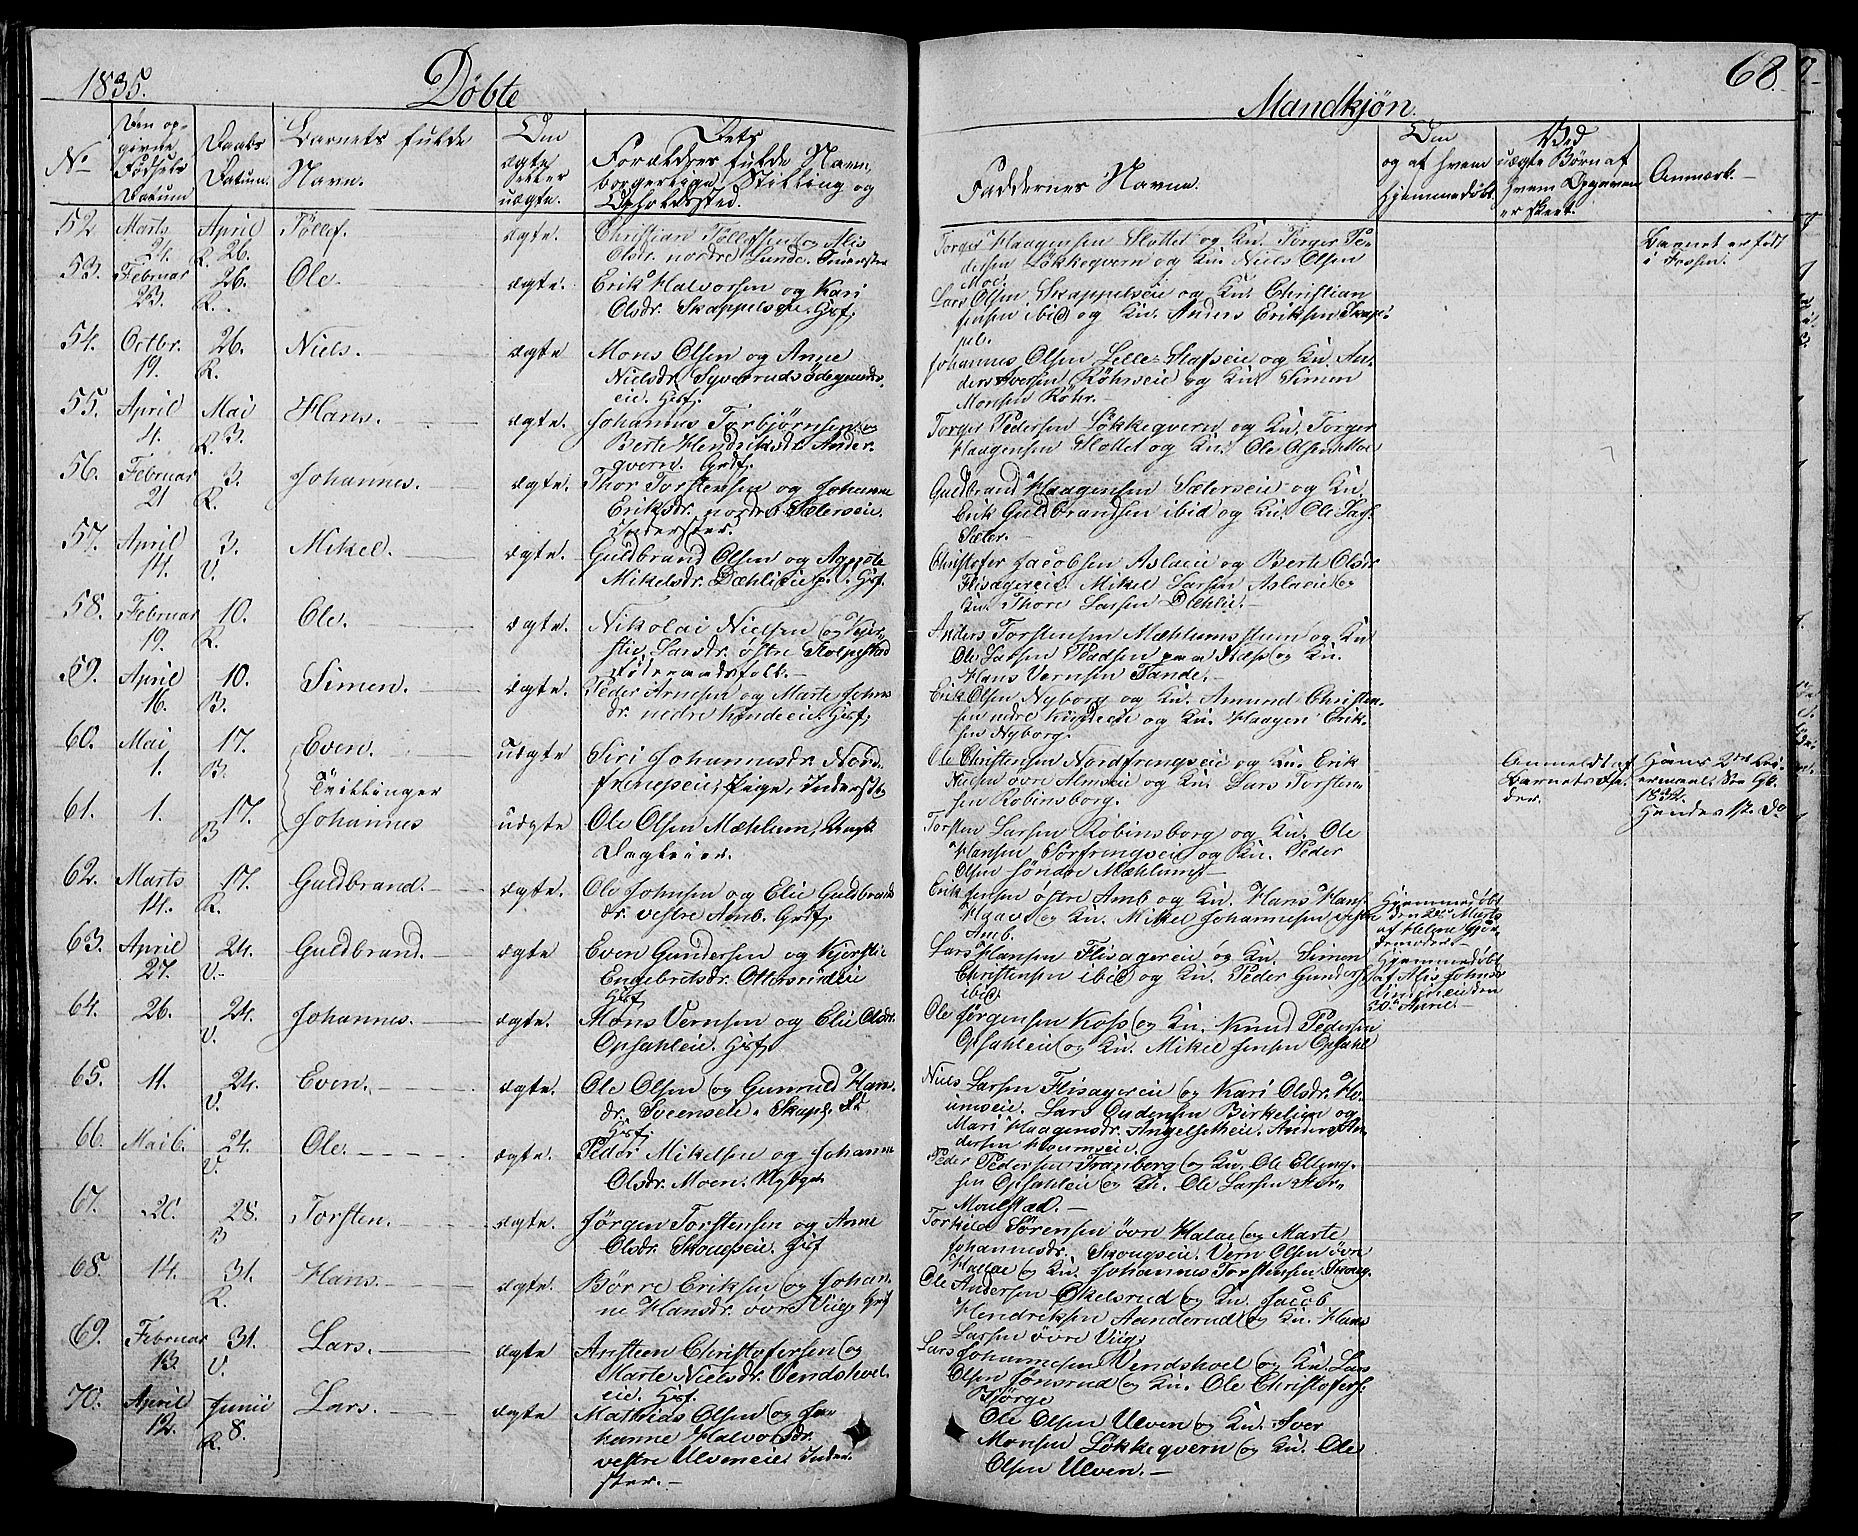 1835.
Döbte
Mandkjön.
68.
No
Den op-
givne
Fødsels
Datum
Daabs
Datum.
Barnets fulde
Navn.
Om
ægte
eller
uægte.
Dets
Forældres fulde Navn,
borgerlige Stilling og
Opholdssted.
Faddernes Navne.
Om
og af hvem
hjemmedøbt
Ved
uægte Børn af
hvem Opgaven
er skeet.
Anmærk.
52. Marts 24. April 26. R. Tøllef. ægte. Christian Tøllefsen og Alis
Olsdr. nordre Lunde.
Torger Haagensen Slottet og Kn. Torger Pe-
dersen Løkkeqvern og Kn. Niels Olsen
Moe.
Barnet er født
53. Februar 23. 26. R. Ole. ægte. Erik Halvorsen og Kari
Olsdr. Skappelseie. Hsf.
Lars Olsen Skappelseie og Kn. Christian
Jensen ibid og Kn. Anders Eriksen Skap-
pels.
54. Octbr. 19. 26. R. Niels. ægte Mons Olsen og Anne
Nielsdr. Syverudsødegaards-
eie. Hsf.
Johannes Olsen Lille-Stafseie og Kn. An-
ders Iversen Røhrseie og Kn. Simen
Monsen Røhr.
55. April 4. Mai 3. R. Hans. ægte. Johannes Torbjørnsen og
Berte Hendriksdr. Ander-
qvern. Grdf.
Torger Pedersen Løkkeqvern og Kn. Torger
Haagensen Slottet og Kn. Ole Olsen Moe
56. Februar 21 3. R. Johannes. ægte. Thor Torstensen og Johanne
Eriksdr. nordre Sælerseie
Inderster.
Guldbrand Haagensen Sælerseie og Kn
Erik Guldbrandsen ibid og Kn. Ole
Sæler.
57. April 14. 3. V. Mikel. ægte. Guldbrand Olsen og
Mikelsdr. Dæhlieie. Hsf.
Christofer Jacobsen Aslaeie og Berte Olsdr
Flisagereie. Mikel Larsen Aslaeie og
Kn. Thore Larsen Dæhlie.
58. Februar 19. 10. R. Ole. ægte. Nikolai Nielsen og Kjer-
stie Larsdr. østre Kolpestad
Føderaadsfolk.
Anders Torstensen Mæhlumsstuen og Kn
Ole Larsen Stadsen paa Næs og Kn.
Hans Vernsen Tande.
59. April 16. 10. B. Simen. ægte. Peder Arnesen og Marte Johns
dr. nedre Kindeeie. Hsf.
Erik Olsen Nyborg og Kn. Amund Christen-
sen nedre Kindeeie og Kn. Haagen Erik-
sen Nyborg.
60. Mai 1. 17. B. Even. uægte Siri Johannesdr. Nord-
fringseie, Pige, Inderst
Tvillinger
Ole Christensen Nordfringseie og Kn. Erik
Nielsen øvre Almseie og Kn. Lars Torsten-
sen Robinsborg.
Anmeldt af
Barnets Fa-
der.
Hans 2den Lei-
ermaal. See Gb.
1832.
Hendes 1te Do
61. 1. 17. B Johannes uægte Ole Olsen Mæhlum, Ungk
Dagleier.
Torsten Larsen Robinsborg og Kn. Ole
Hansen Sørfringseie og Kn. Peder
Olsen søndre Mæhlum
62. Marts 14. 17. R. Guldbrand. ægte. Ole Johnsen og Elie Guldbrands
dr. vestre Amb. Grdf.
Erik Jensen østre Amb og Kn. Hans Hans-
Haave og Kn. Mikel Johannesen vestre
Amb.
Hjemmedøbt
den 24 Marts
af Helene Gjør-
demoder.
63. April 27. 24. V. Guldbrand. ægte Even Gundersen og Kjerstie
Engebretsdr. Ottersrudeie
Hsf
Lars Hansen Flisagereie og Kn. Simen
Christensen ibid og Kn. Peder Gunders.
ibid
Hjemmedøbt
af Alis Johnsdr
den
30 April.
64. 26. 24. V. Johannes. ægte. Mons Vernsen og Elie Olsdr.
Opsahleie. Hsf.
Ole Jørgensen Koss og Kn. Knud Pedersen
Opsahleie og Kn. Mikel Jensen Opsahl
65. 11. 24. V. Even. ægte. Ole Olsen og Gunnild Han-
dr. Sveenseie.
Hsf.
Niels Larsen Flisagereie og Kari Olsdr.
Lars Gudensen Birkelien og
Mari Haagensdr. Angelseth. Anders An-
dersen Houmseie.
66. Mai 6. 24. V. Ole. ægte. Peder Mikelsen og Johanne
Olsdr. Moen. Nybyg.
Peder Pedersen Tranberg og Kn. Ole Elling-
sen Opsahleie og Kn. Ole Larsen
Moelstad.
67. 20. 28. B Torsten. ægte. Jørgen Torstensen og Anne
Olsdr. Skougseie. Hsf
Torkild Sørensen øvre Kalae og Marte
Johannesdr. Skougseie. Vern Olsen øvre
Kallae og Kn. Johannes Torstensen Skoug.
68. 14. 31. R. Hans. ægte. Børre Eriksen og Johan-
ne Hansdr. øvre Viig. Grdf
Ole Andersen Ekelsrud og Kn. Jacob
Hendriksen Aanderud og Kn. Hans
Larsen øvre Viig.
69. Februar 13. 31. V. Lars. ægte Ansteen Christofersen og
Marte Nielsdr. Vendshoel-
eie. Hsf.
Lars Johannesen Vendshoel og Kn. Lars
Olsen Jonsrud og Kn. Ole Christofers.
Bjørge
70. April 12. Junii 8. R. Lars. ægte Mathias Olsen og Jo-
hanne Halvorsdr.
vestre Ulveneie. Inder-
ster.
Ole Olsen Ulven og Kn. Iver
Monsen Løkkeqvern og Kn. Ole
Olsen Ulven.